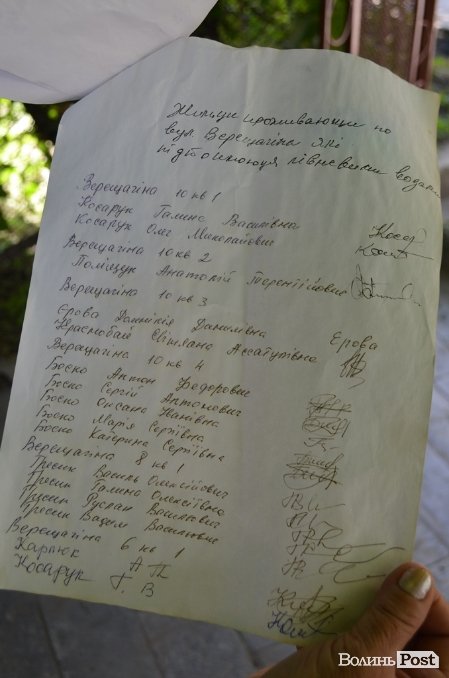 Жильци проживающи по
вул Верещагіна які
підтоплюються лівневими водами
Верещагіна 10 кв 1
Косарук Галина Василівна
Косарук Олег Миколайович
Верещагіна 10 кв 2
Поліщук Анатолій Терентійович
Верещагіна 10 кв 3
Єрова Домнікія Данилівна Єрова
Світлана
Верещагіна 10 кв 4
Боско Антон Федорович
Боско Сергій Антонович
Боско Оксана Іванівна
Боско Марія Сергіївна
Боско Катерина Сергіївна
Верещагіна 8 кв 1
Пресик Василь Олексійович
Пресик Галина Олексіївна
Пресик Руслан Васильович
Пресик Вадим Васильович
Верещагіна 6 кв 1
Карлюк А П
Косарук Г. В
Волинь Post